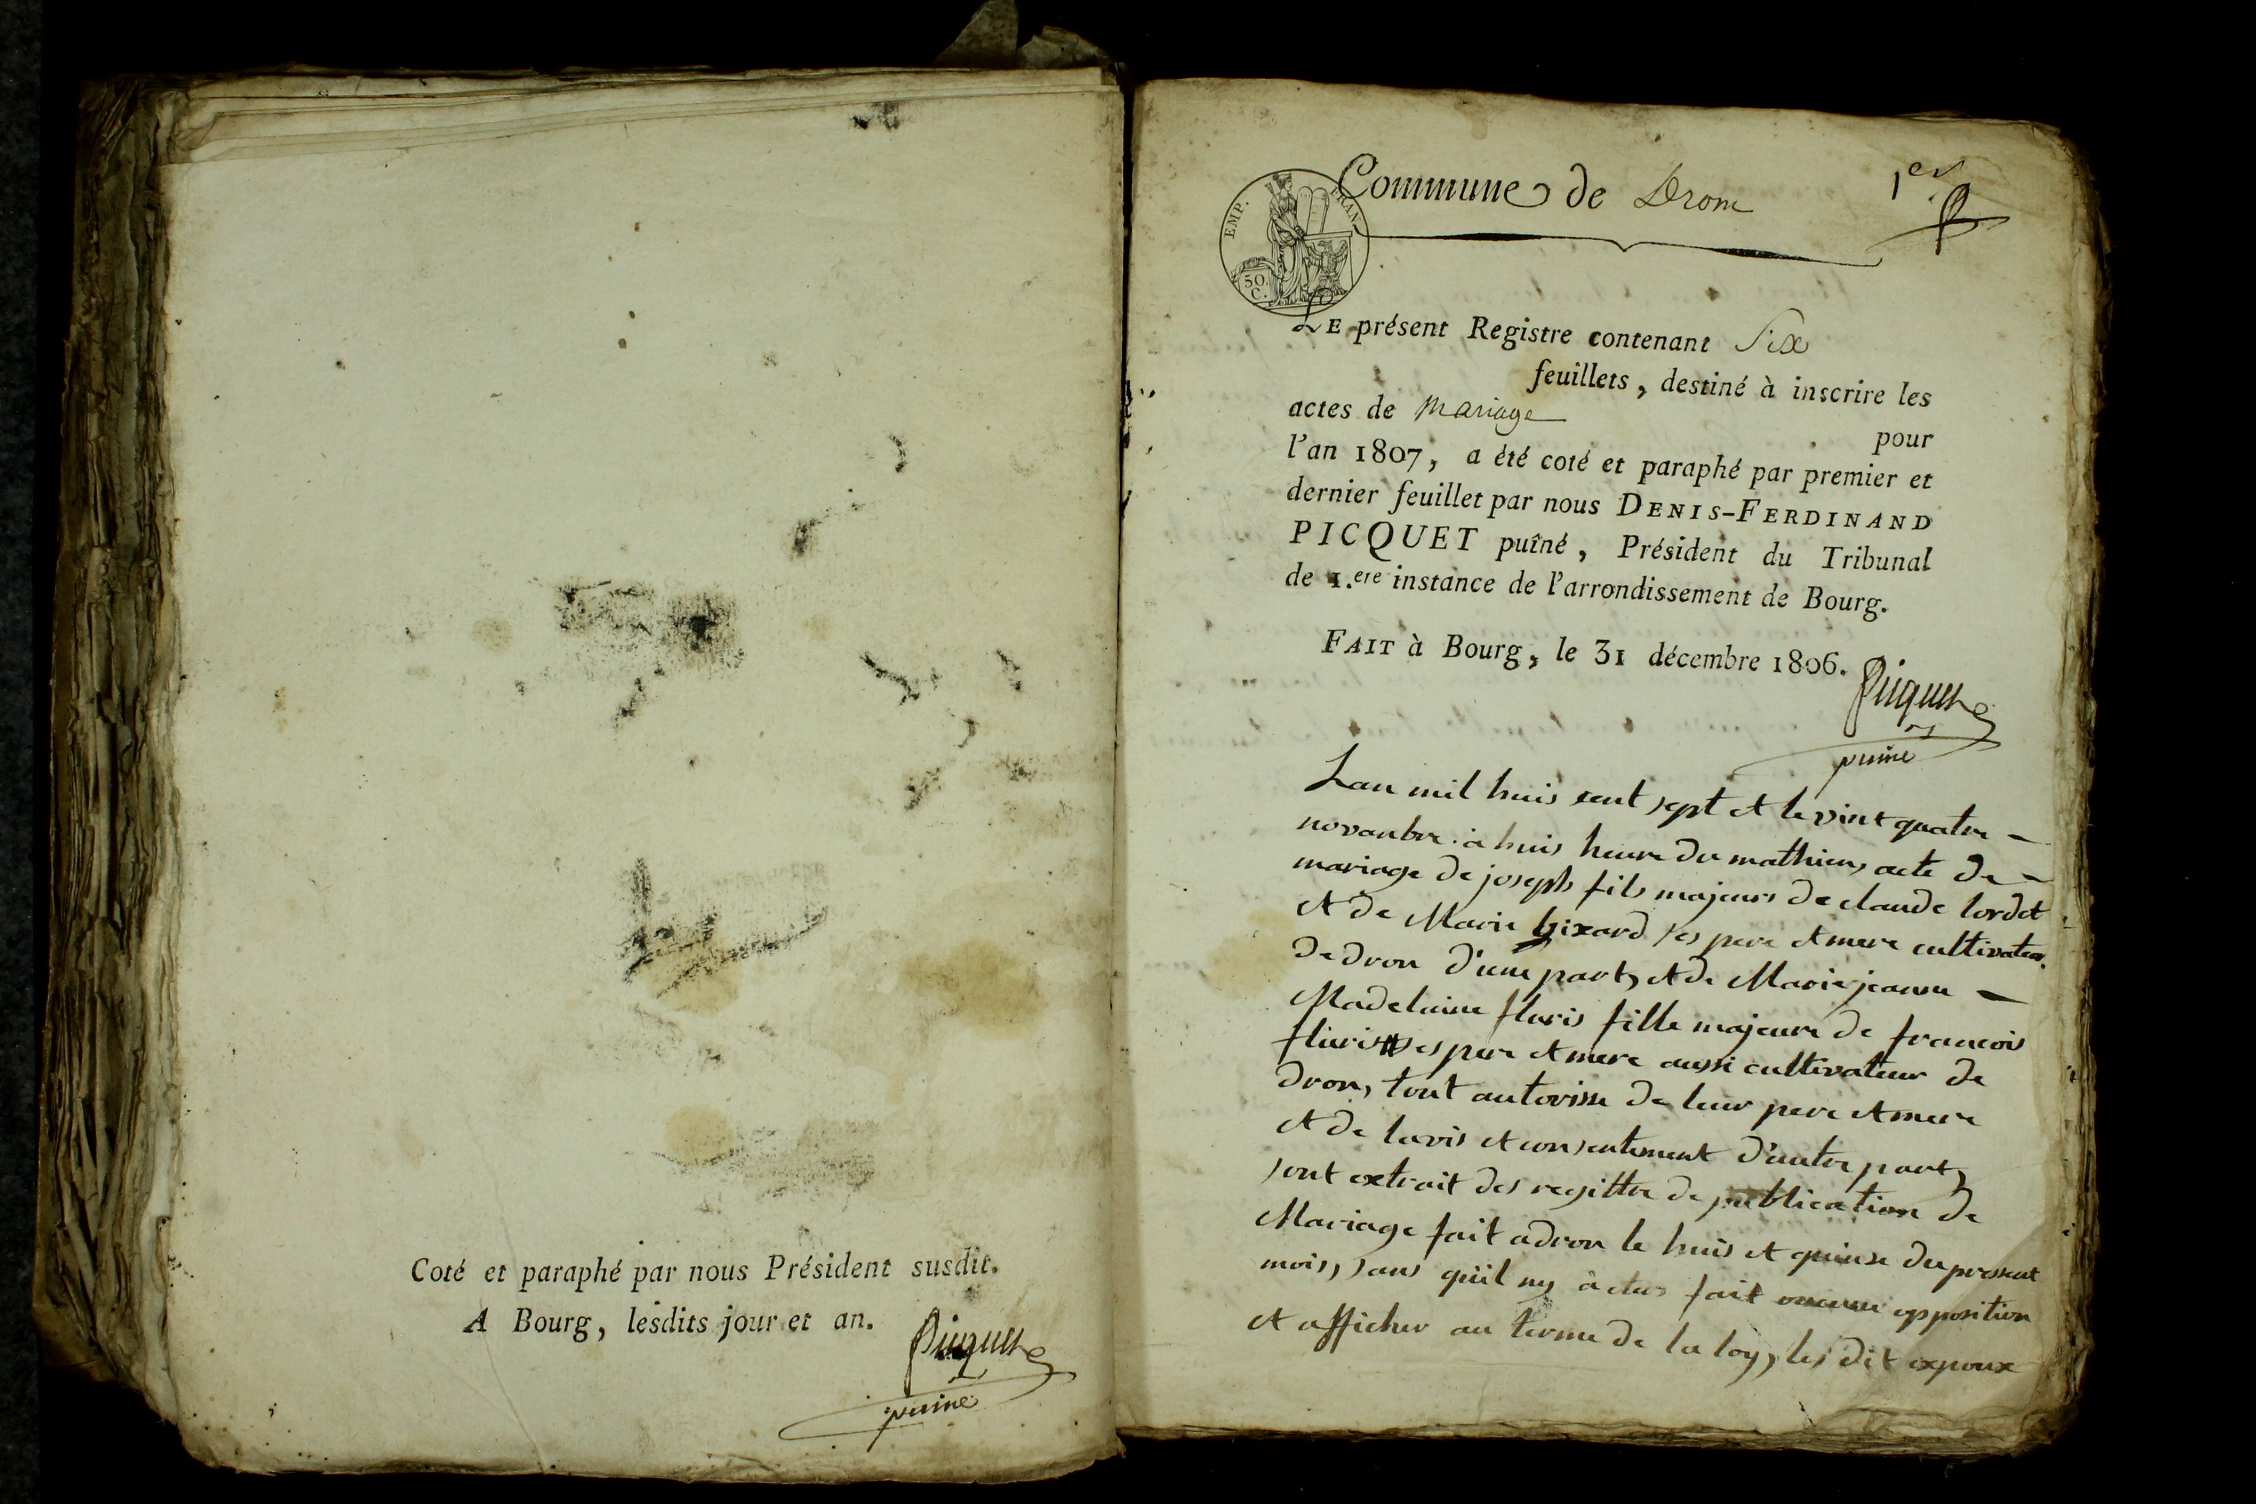 Coté et paraphé par nous Président susdit.
A Bourg, lesdits jour et an.
Picquet
puiné
Commune de Drom
1er
EMP. FRAN.
50 C.
LE présent Registre contenant Six
feuillets, destiné à inscrire les
actes de mariage
pour
l'an 1807, a été coté et paraphé par premier et
dernier feuillet par nous DENIS-FERDINAND
PICQUET puîné, Président du Tribunal
de 1.ere instance de l'arrondissement de Bourg.
FAIT à Bourg, le 31 décembre 1806.
Picquet
puiné
Lan mil huis cent sept et le vint quatre
novanbre à huis heure du mathien acte de
mariage de joseph fils majeurs de claude lordet
et de Marie gixard ses pere et mere cultivateur
de dron d'une part, et de Marie jeanne
Madelaine fluris fille majeure de francois
fluris ses pere et mere aussi cultivateur de
dron, tout autorisse de leur pere et mere
et de lavis et consentement d'autre part,
sont extrait des registre de publication de
Mariage fait a dron le huis et quinse du pressent
mois, sans quil ny a fait opposition
et afficher au terme de la loy, les dit expoux